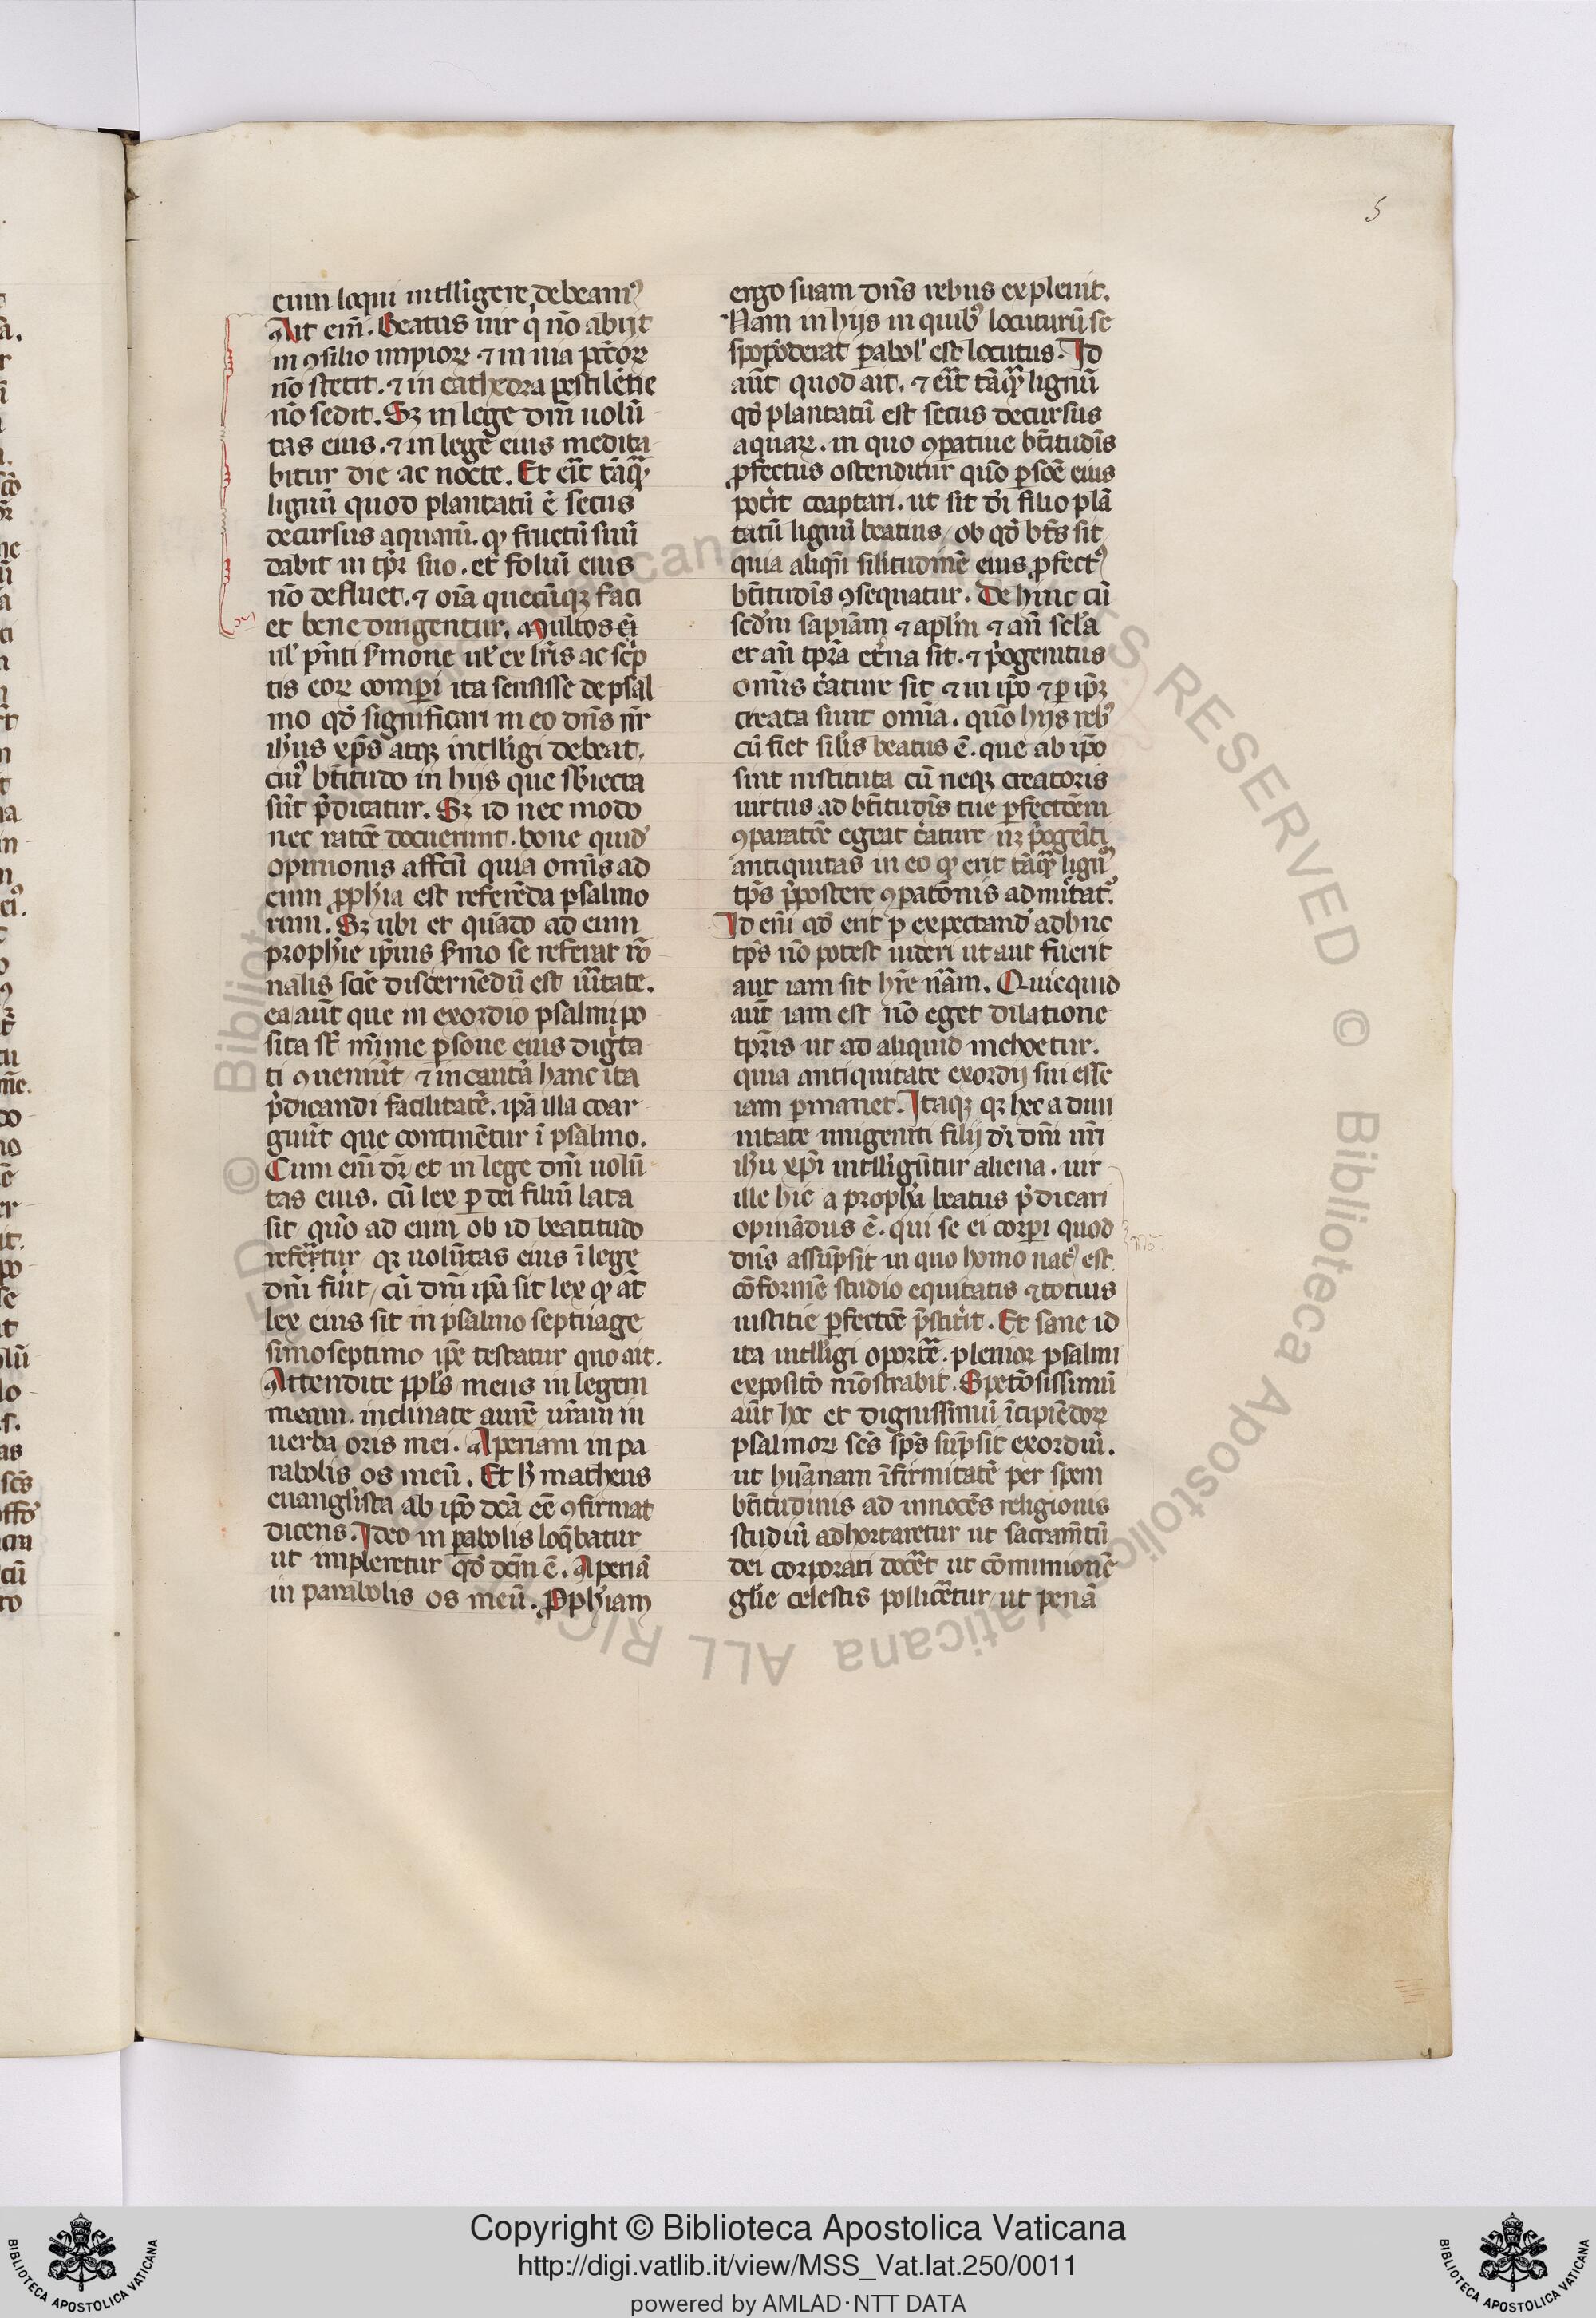 5
eum loqui intelligere debeamꝰ
Ait em̄. Beatus uir q̇ nō abijt
in ꝯsilio impioꝝ ⁊ in uia pctōꝝ
nō stetit. ⁊ in cathedra pestilētie
nō sedit. Sꝫ in lege dn̄i uolū
tas eius. ⁊ in lege eius medita
bitur die ac nocte. Et erit tāqꝫ
lignū quod plantatū ē secus
decursus aquarū. qͥ fructū suū
dabit in tp̄r suo. et foliū eius
nō defluet. ⁊ oīa quecūqꝫ faci
et bene dirigentur. Multos ei
ul̓ pn̄ti ẜmone ul̓ ex lr̄is ac sc̄p
tis eoꝝ comperi ita sensisse de psal
mo qđ significari in eo dn̄s nr̄
ih̓us xp̄s atqꝫ intelligi debeat.
cuiꝰ bt̄itudo in hijs que sb̓iecta
sūt p̄dicatur. Sꝫ id nec modo
nec ratōe docuerunt. bone quid̓
opinionis affcū quia omīs ad
eum ꝓph̓ia est referēda psalmo
rum. Sꝫ ubi et quādo ad eum
prophie ip̄ius ẜmo se referat rō
nalis scīe discernēdū est uītate.
ea aūt que in exordio psalmi po
sita st̄ mīme ꝑsone eius digͥta
ti ꝯueniūt ⁊ incautā hanc ita
p̄dicandi facilitatē. ipā illa coar
guūt que continētur ī psalmo.
Cum em̄ dr̄ et in lege dn̄i uolū
tas eius. cū lex ꝑ dei filiū lata
sit quō ad eum ob id beatitudo
refertur qꝛ uolūtas eius ī lege
dn̄i fuīt cū dn̄i ipā sit lex qͥ at̄
lex eius sit in psalmo septuage
simo septimo ip̄e testatur quo ait.
Attendite ppl̓s meus in legem
meam. inclinate aurē ur̄am in
uerba oris mei. Aperiam in pa
rabolis os meū. Et h̓ matheus
euangl̓ista ab ip̄o dcā eē ꝯfirmat
dicens. Ideo in ꝑabolis loq̄batur
ut impleretur qđ dcm̄ ē. Aperiā
in parabolis os meū. Ꝓph̓iam
ergo suam dn̄s rebus expleuit.
Nam in hijs in quibꝰ locuturū se
spopōderat ꝑabol̓ est locutus. Id
aūt quod ait. ⁊ erit tāqꝫ lignū
qđ plantatū est secus decursus
aquaꝝ. in quo ꝯparatiue bt̄itudīs
ꝓfectus ostenditur quō ꝑsōe eius
pot̓it coaptari. ut sit dī filio plā
tatū lignū beatius ob qđ bt̄s sit
quia aliqn̄ sil̓itudinē eius ꝓfectꝰ
bt̄itudīs ꝯsequatur. De hinc cū
scd̓m sapiam ⁊ apl̓m ⁊ an̄ scl̓a
et an̄ tpr̄a et̓na sit. ⁊ p̄ogenitus
omīs c̓ature sit ⁊ in ip̄o ⁊ ꝑ ip̄ꝫ
creata sunt omīa. quō hijs rebꝰ
cū fiet sil̓is beatus ē. que ab ip̄o
sint instituta cū neqꝫ creatoris
uirtus ad bt̄itudīs tue ꝑfectōem
ꝯparatōe egeat c̓ature nꝫ p̄ogeīti
antiquitas in eo qͥ erit tāqꝫ lignū
tp̄s p̄postere ꝯpatōnis admittat.
Id em̄ qđ erit ꝑ expectand̓ adhuc
tp̄s nō potest uideri ut aut fuerit
aut iam sit hr̄e nām. Quicquid
aūt iam est nō eget dilatione
tpr̄is ut ad aliquid inchoetur.
quia antiquitate exordij sui esse
iam ꝑmanet. Itaqꝫ qꝛ hec a diui
nitate unigeniti filij dī dn̄i nr̄i
ih̓u xp̄i intelligūtur aliena. uir
ille hic a proph̓a beatus p̄dicari
opināndus ē. qui se ei corpi quod
dn̄s assūpsit in quo homo natꝰ est
cōformē studio equitatis ⁊ totius
iustitie ꝑfectōe p̄stit̓it. Et sane id
ita intelligi oportē. plenior psalmi
exposito mōstrabit. Spetōsissimū
aūt hoc et dignissimū īcipiēdoꝝ
psalmoꝝ scs̄ sp̄s sūpsit exordiū.
ut huānam īfirmitatē per spem
bt̄itudinis ad innocēs religionis
studiū adhortaretur ut sacram̄tū
dei corporati docēt ut cōmunionē
gl̓ie celestis pollicētur ut penā
Copyright © Biblioteca Apostolica Vaticana
http://digi.vatlib.it/view/MSS_Vat.lat.250/0011
powered by AMLAD·NTT DATA